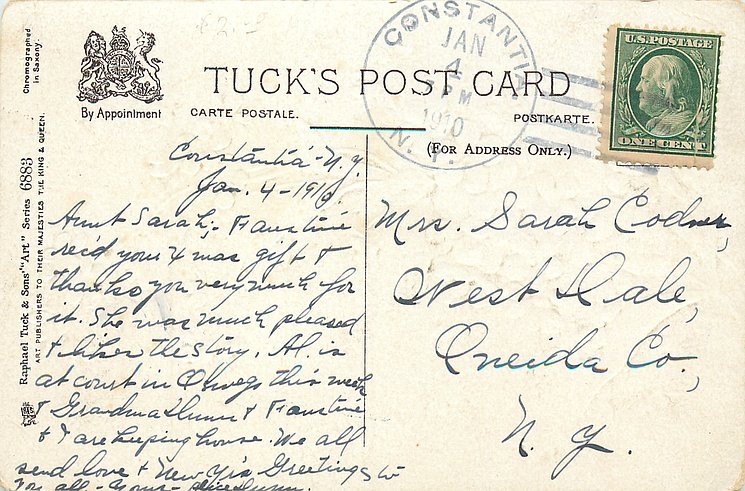 $2.-
Chromographed
in Saxony
By Appointment
TUCK'S POST CARD
CARTE POSTALE.
POSTKARTE.
(FOR ADDRESS ONLY.)
CONSTANTI
JAN
4
PM
1910
N. Y.
U.S. POSTAGE
ONE CENT
Raphael Tuck & Sons' "Art" Series 6883
ART PUBLISHERS TO THEIR MAJESTIES THE KING & QUEEN.
Constantia - N.Y.
Jan. 4 - 1910.
Aunt Sarah; - Faustine
rec'd your Xmas gift &
thanks you very much for
it. She was much pleased
& likes the story. Al. is
at court in Oswego this week
& Grandma Dunn & Faustine
& I are keeping house. We all
send love & New Yr's Greetings to
you all - Yours -
Mrs. Sarah Codner,
West Dale,
Oneida Co.,
N. Y.